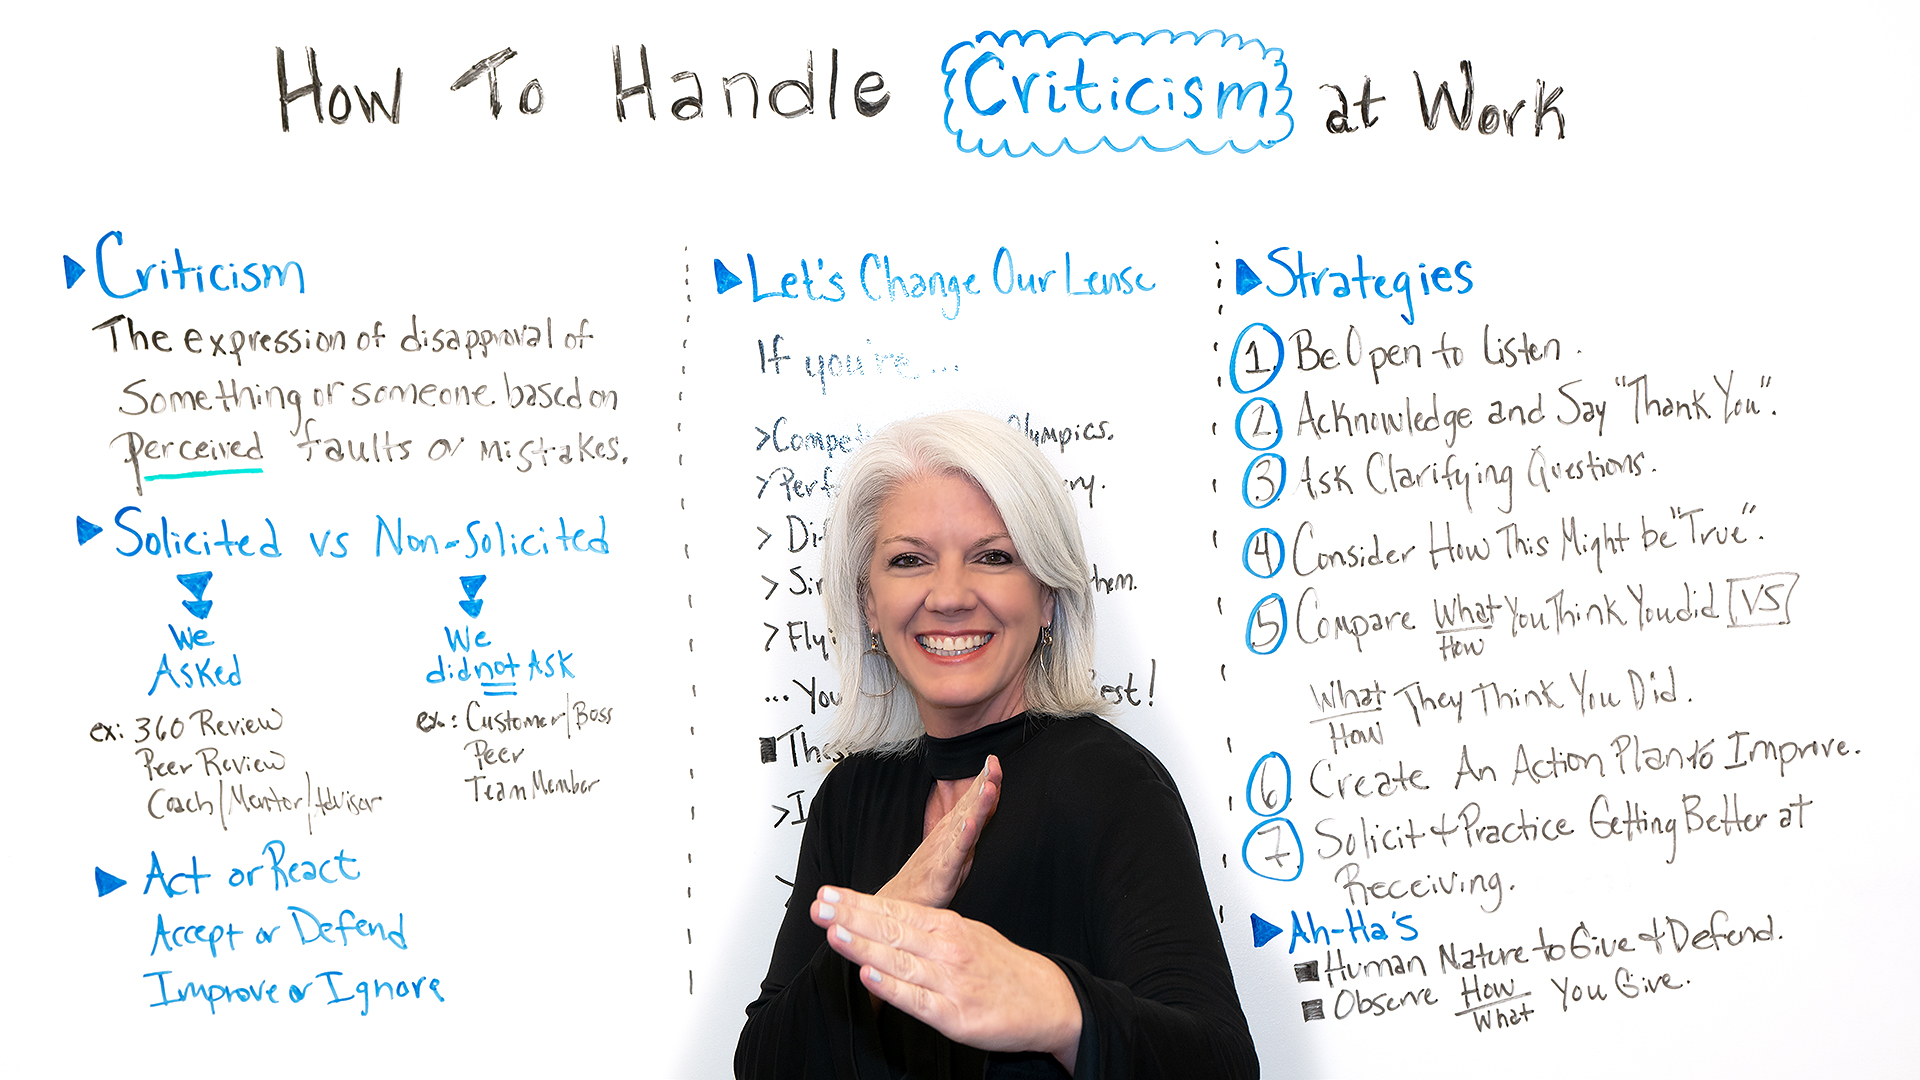 How To Handle Criticism at Work
Criticism
The expression of disapproval of
Something or someone based on
perceived faults or mistakes.
Solicited vs Non-Solicited
We
Asked
ex: 360 Review
Peer Review
Coach/Mentor/Advisor
We
did not Ask
ex.: Customer/Boss
Peer
Team Member
Act or React
Accept or Defend
Improve or Ignore
Let's Change Our Lense
If you're...
>
>
>
> hem.
>
... You est!
>
Strategies
1. Be Open to Listen.
2. Acknowledge and Say "Thank You".
3. Ask Clarifying Questions.
4. Consider How This Might be "True".
5. Compare What You Think You did VS
How
What They Think You Did.
How
6. Create An Action Plan to Improve.
7. Solicit + Practice Getting Better at
Receiving.
Ah-Ha's
Human Nature to Give & Defend.
Observe How You Give.
What